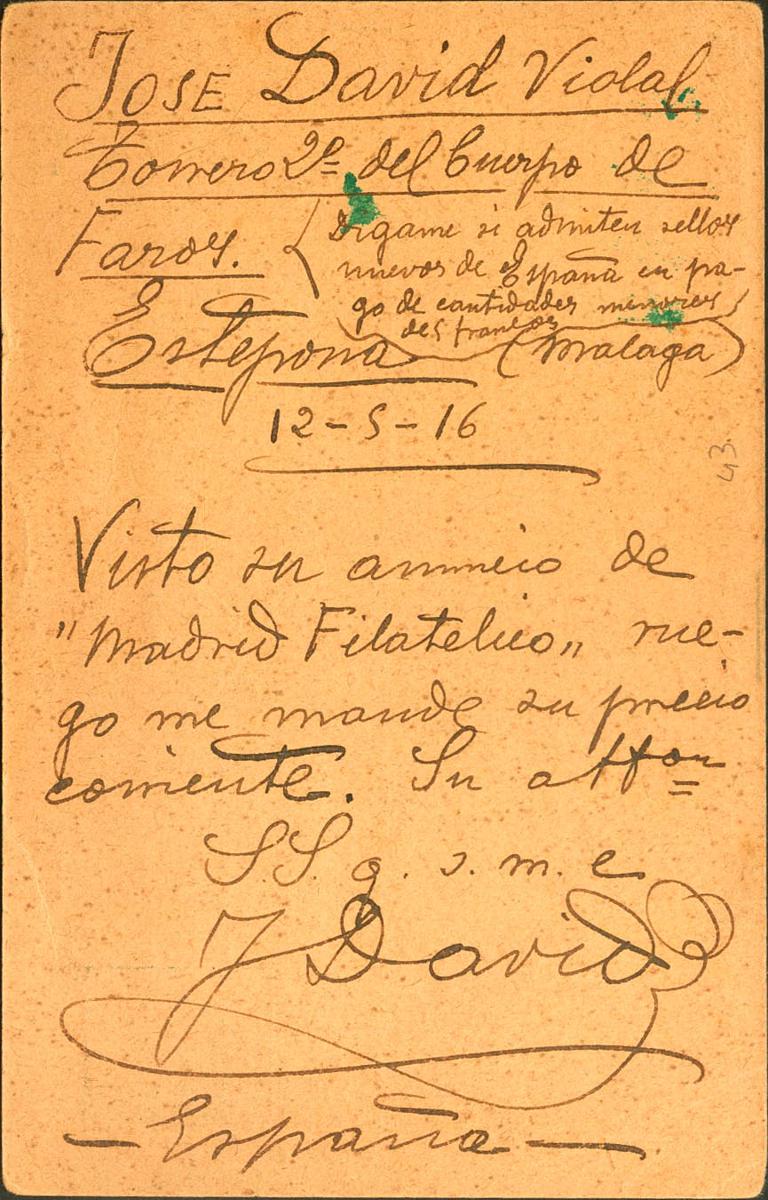 JOSE David Violal
Torrero 2º del Cuerpo de
Faros.
Digame si admiten sellos
nuevos de España en pa-
go de cantidades menores
de 5 francos
Estepona (Malaga)
12-5-16
43
Visto su anuncio de
"Madrid Filatelico„ rue-
go me mande su precio
corriente. Su affmo
S.S. q. s. m. e
J David
- España -